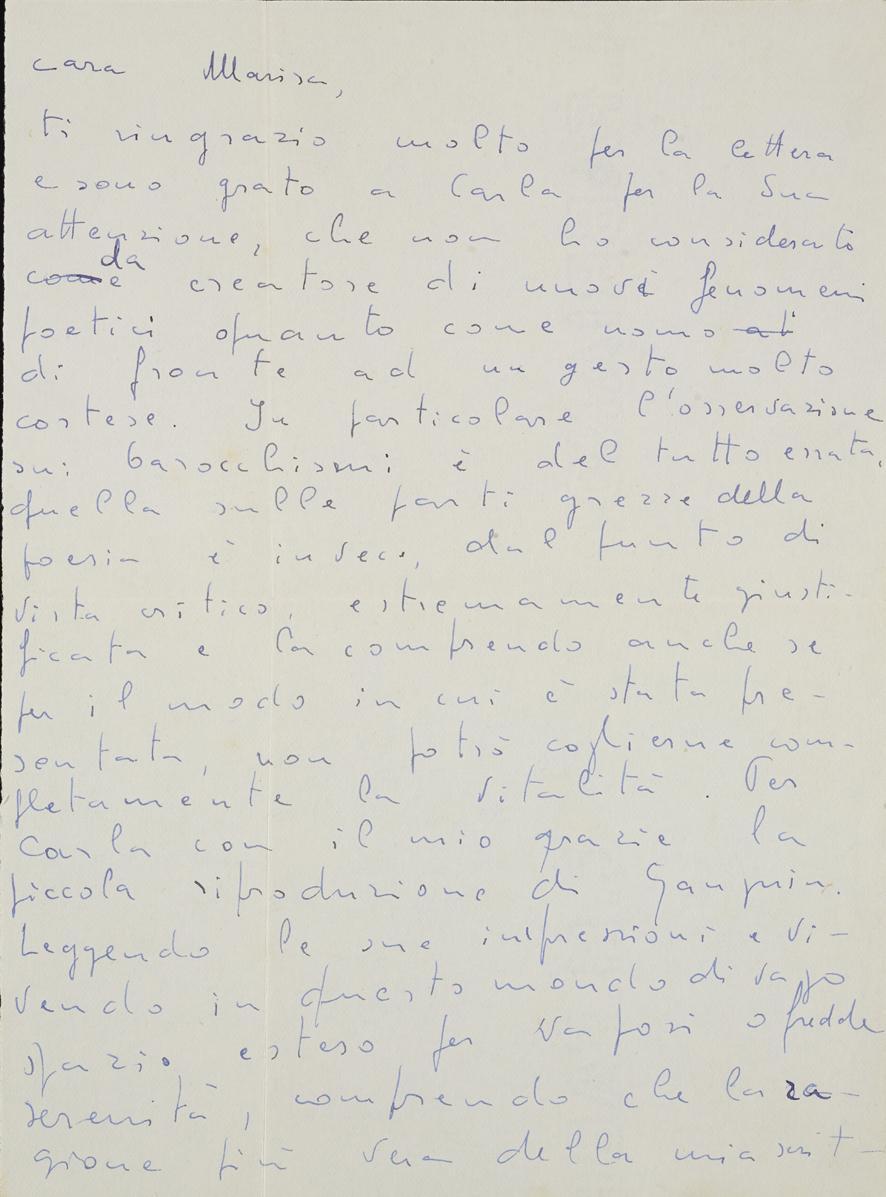 cara Marisa,
ti ringrazio molto per la lettera
e sono grato a Carla per la Sua
attenzione, che non ho considerato
da
come creatore di nuovi fenomeni
poetici quanto come uomo at
di fronte ad un gesto molto
cortese. In particolare l'osservazione
sui barocchismi è del tutto errata,
quella sulle parti grezze della
poesia è invece, dal punto di
vista critico, estremamente giusti-
ficata e la comprendo anche se
per il modo in cui è stata pre-
sentata, non potrò coglierne com-
pletamente la vitalità. Per
Carla con il mio grazie la
piccola riproduzione di Gauguin.
Leggendo le sue impressioni e vi-
vendo in questo mondo di vago
spazio esteso per vapori o fredde
serenità, comprendo che la ra-
gione più vera della mia scrit-